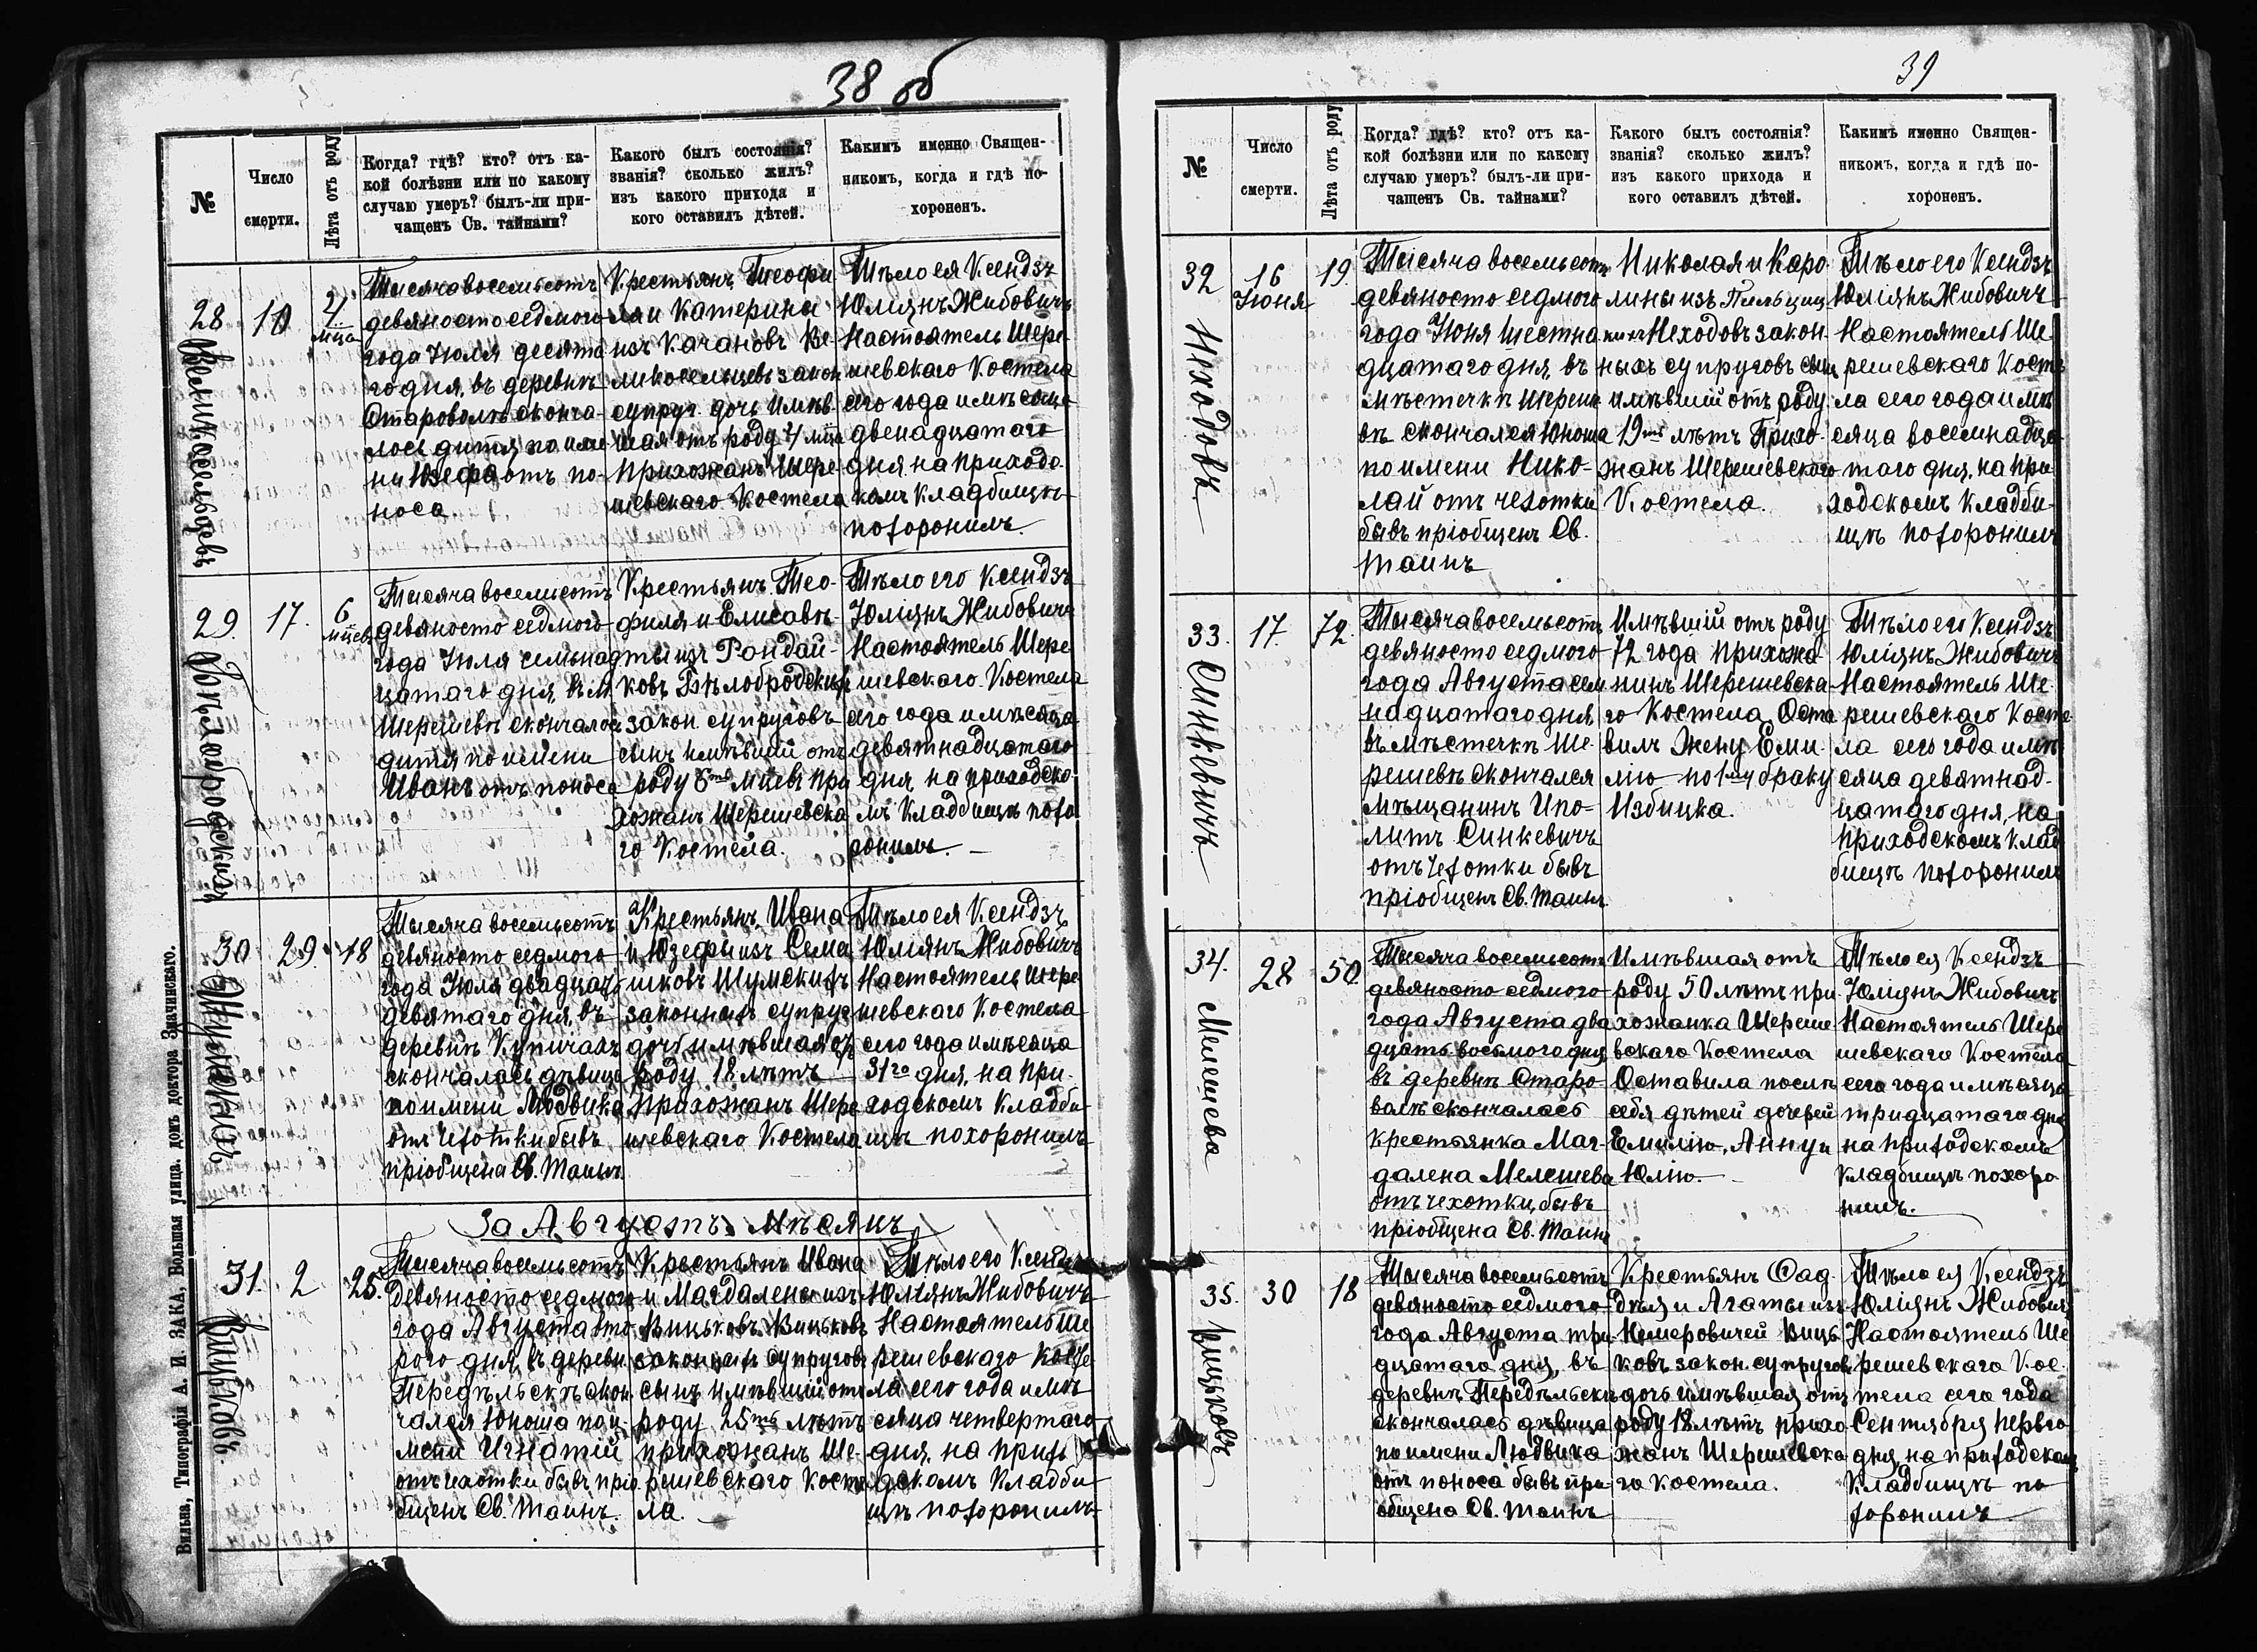 38 об
№
Число
смерти.
Лѣта отъ роду
Когда? гдѣ? кто? отъ ка-
кой болѣзни или по какому
случаю умеръ? былъ-ли при-
чащенъ Св. тайнами?
Какого былъ состоянія?
званія? сколько жилъ?
изъ какого прихода и
кого оставилъ дѣтей.
Какимъ именно Священ-
никомъ, когда и гдѣ по-
хороненъ.
28
Великосельцевъ
10
4
мца
Тысяча восемьсотъ
девяносто седмого
года Іюля десята
го дня, въ деревнѣ
Староволѣ сконча-
лось дитя по име
ни Юзефа отъ по-
носа.
Крестьянъ Теофи
ля и Катерины
изъ Качановъ Ве-
ликосельцевъ закон
супруг. дочь имѣв-
шая отъ роду 4 мца
Прихожанъ Шере-
шевскаго Костела
Тѣло ея Ксендзъ
Юліянъ Жибовичъ
Настоятель Шере-
шевскаго Костела
сего года и мѣсяца
двенадцатаго
дня на приходс
комъ Кладбищѣ
похоронилъ.
29.
Бѣлобродскихъ
17.
6
мцев
Тысяча восемьсотъ
девяносто седмого
года Іюля семьнад
цатаго дня, въ м.
Шерешевѣ скончалось
дитя по имени
Иванъ отъ поноса
Крестьянъ Тео-
филя и Елисаве-
ты изъ Рондай-
ковъ Бѣлобродскихъ
закон супруговъ
сынъ имѣвшій отъ
роду 6ть мцевъ При
хожанъ Шерешевска
го Костела.
Тѣло его Ксендзъ
Юліянъ Жибовичъ
Настоятель Шере
шевскаго Костела
сего года и мѣсяца
девятнадцатаго
дня, на приходско-
мъ Кладбищѣ похо
ронилъ. —
30
Шумскихъ
29.
18
Тысяча восемьсотъ
девяносто седмого
года Іюля двадцать
девятаго дня, въ
деревнѣ Купичахъ
скончалась дѣвица
по имени Людвика
отъ чехотки бывъ
пріобщена Св. Таинъ
Крестьянъ Ивана
и Юзефы изъ Сема
шковъ Шумскихъ
законныхъ супруг
дочь имѣвшая отъ
роду 18 лѣтъ
Прихожанъ Шере
шевскаго Костела
Тѣло ея Ксендзъ
Юліянъ Жибовичъ
Настоятель Шере
шевскаго Костела
сего года и мѣсяца
31го дня, на при-
ходскомъ Кладби
щѣ похоронилъ
За Августъ Мѣсяцъ
31.
Вицьковъ
2
25.
Тысяча восемьсотъ
девяносто седмого
года Августа вто
рого дня, въ деревн
Передѣльскѣ скон
чался юноша по и-
мени Игнатій
отъ чехотки бывъ прі
общенъ Св. Таинъ.
Крестьянъ Ивана
и Магдалены изъ
Вицьковъ Вицьковъ
законныхъ супруговъ
сынъ имѣвшій отъ
роду 25ть лѣтъ
прихожанъ Ше-
решевскаго Косте
ла.
Тѣло его Ксендзъ
Юліянъ Жибовичъ
Настоятель Ше
решевскаго Косте
ла сего года и мѣ
сяца четвертаго
дня, на прихо
дскомъ Кладби
щѣ похоронилъ
Вильна, Типографія А. И. ЗАКА, Большая улица. домъ доктора Здачинскаго.
39
№
Число
смерти.
Лѣта отъ роду
Когда? гдѣ? кто? отъ ка-
кой болѣзни или по какому
случаю умеръ? былъ-ли при-
чащенъ Св. тайнами?
Какого былъ состоянія?
званія? сколько жилъ?
изъ какого прихода и
кого оставилъ дѣтей.
Какимъ именно Священ-
никомъ, когда и гдѣ по-
хороненъ.
32
Неходовъ
16
Іюня
19.
Тысяча восемьсотъ
девяносто седмого
года Іюня шестна
дцатаго дня, въ
мѣстечкѣ Шереше
вѣ скончался юноша
по имени Нико-
лай отъ чехотки
бывъ пріобщенъ Св.
Таинъ
Николая и Каро
лины изъ
Неходовъ закон-
ныхъ супруговъ сынъ
имѣвшій отъ роду
19ть лѣтъ Прихо-
жанъ Шерешевскаго
Костела.
Тѣло его Ксендзъ
Юліянъ Жибовичъ
Настоятель Ше-
решевскаго Косте
ла сего года и мѣ
сяца восемнадца
таго дня, на при
ходскомъ Кладби-
щѣ похоронилъ
33.
Синкевичъ
17.
72.
Тысяча восемьсотъ
девяносто седмого
года Августа сем
надцатаго дня
въ мѣстечкѣ Ше-
решевѣ скончался
мѣщанинъ Ипо-
литъ Синкевичъ
отъ чехотки бывъ
пріобщенъ Св. Таинъ
Имѣвшій отъ роду
72 года прихожа
нинъ Шерешевска-
го Костела. Оста
вилъ жену Еми-
лію по 1му браку
Избицка.
Тѣло его Ксендзъ
Юліянъ Жибовичъ
Настоятель Ше-
решевскаго Косте
ла сего года и мѣ
сяца девятнад-
цатаго дня, на
приходскомъ Клад
бищѣ похоронилъ
34.
Мелешева
28
50
Тысяча восемьсотъ
девяносто седмого
года Августа два
дцать восьмого дня
въ деревнѣ Старо-
волѣ скончалась
крестьянка Маг-
далена Мелешева
отъ чехотки, бывъ
пріобщена Св. Таинъ
Имѣвшая отъ
роду 50 лѣтъ при
хожанка Шереше
вскаго Костела
Оставила послѣ
себя дѣтей дочерей
Емилію, Анну и
Юлію.
Тѣло ея Ксендзъ
Юліянъ Жибовичъ
Настоятель Шере
шевскаго Костела
сего года и мѣсяца
тридцатаго дня
на приходскомъ
Кладбищѣ похоро
нилъ.
35.
Вицьковъ
30
18
Тысяча восемьсотъ
девяносто седмого
года Августа три
дцатаго дня, въ
деревнѣ Передѣльскѣ
скончалась дѣвица
по имени Людвика
отъ поноса бывъ прі
общена Св. Таинъ
Крестьянъ Ѳад-
дѣя и Агаты изъ
Немеровичей Виць
ковъ закон. супругов
дочь имѣвшая отъ
роду 18 лѣтъ прихо
жанъ Шерешевска
го костела.
Тѣло ея Ксендзъ
Юліянъ Жибовичъ
Настоятель Ше
решевскаго Кос-
тела сего года
Сентября перваго
дня, на приходском
Кладбищѣ по
хоронилъ